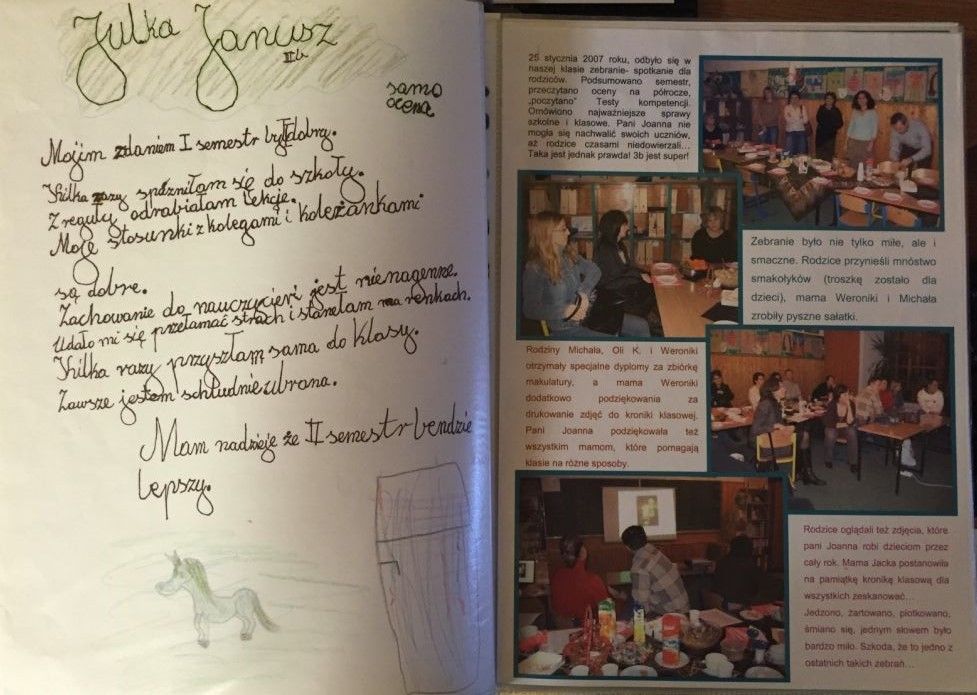 Julka Janusz
IIb
samo
ocena
Mojim zdaniem I semestr był dobry.
Kilka razy spózniłam się do szkoły.
Z reguły odrabiałam lekcje.
Moje stosunki z kolegami i koleżankami
są dobre.
Zachowanie do nauczycieli jest nienagenne.
Udało mi się przełamać strach i stanełam na renkach.
Kilka razy przyszłam sama do klasy.
Zawsze jestem schludnie ubrana.
Mam nadzieje że II semestr bendzie
lepszy.
25 stycznia 2007 roku, odbyło się w
naszej klasie zebranie- spotkanie dla
rodziców. Podsumowano semestr,
przeczytano oceny na półrocze,
„poczytano” Testy kompetencji.
Omówiono najważniejsze sprawy
szkolne i klasowe. Pani Joanna nie
mogła się nachwalić swoich uczniów,
aż rodzice czasami niedowierzali…
Taka jest jednak prawda! 3b jest super!
Zebranie było nie tylko miłe, ale i
smaczne. Rodzice przynieśli mnóstwo
smakołyków (troszkę zostało dla
dzieci), mama Weroniki i Michała
zrobiły pyszne sałatki.
Rodziny Michała, Oli K. i Weroniki
otrzymały specjalne dyplomy za zbiórkę
makulatury, a mama Weroniki
dodatkowo podziękowania za
drukowanie zdjęć do kroniki klasowej.
Pani Joanna podziękowała też
wszystkim mamom, które pomagają
klasie na różne sposoby.
Rodzice oglądali też zdjęcia, które
pani Joanna robi dzieciom przez
cały rok. Mama Jacka postanowiła
na pamiątkę kronikę klasową dla
wszystkich zeskanować…
Jedzono, żartowano, plotkowano,
śmiano się, jednym słowem było
bardzo miło. Szkoda, że to jedno z
ostatnich takich zebrań…